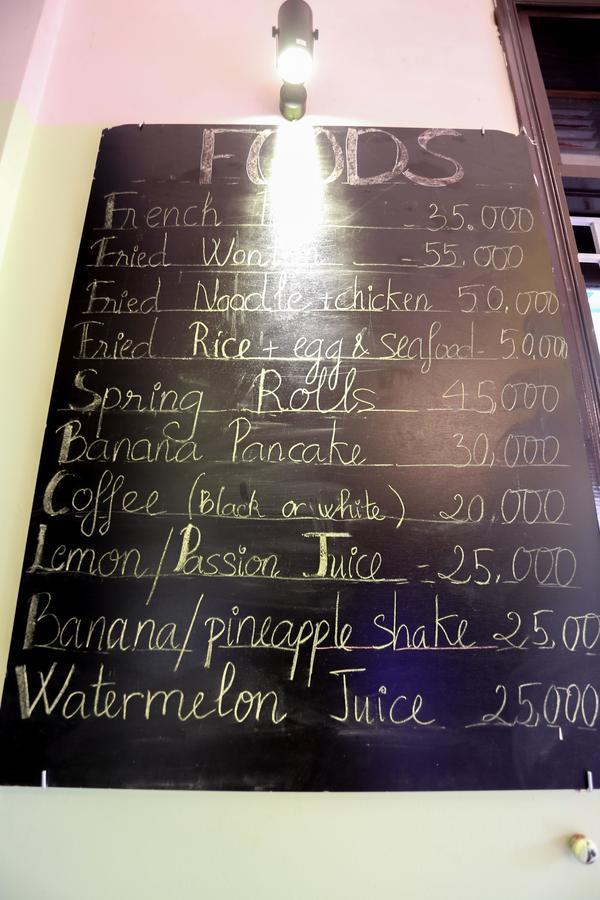 FOODS
French - 35.000
Fried Wonton - 55.000
Fried Noodle + chicken 50,000
Fried Rice + egg & seafood - 50,000
Spring Rolls 45,000
Banana Pancake 30,000
Coffee (Black or white) 20,000
Lemon/Passion Juice - 25.000
Banana/pineapple shake 25.00
Watermelon Juice 25,000